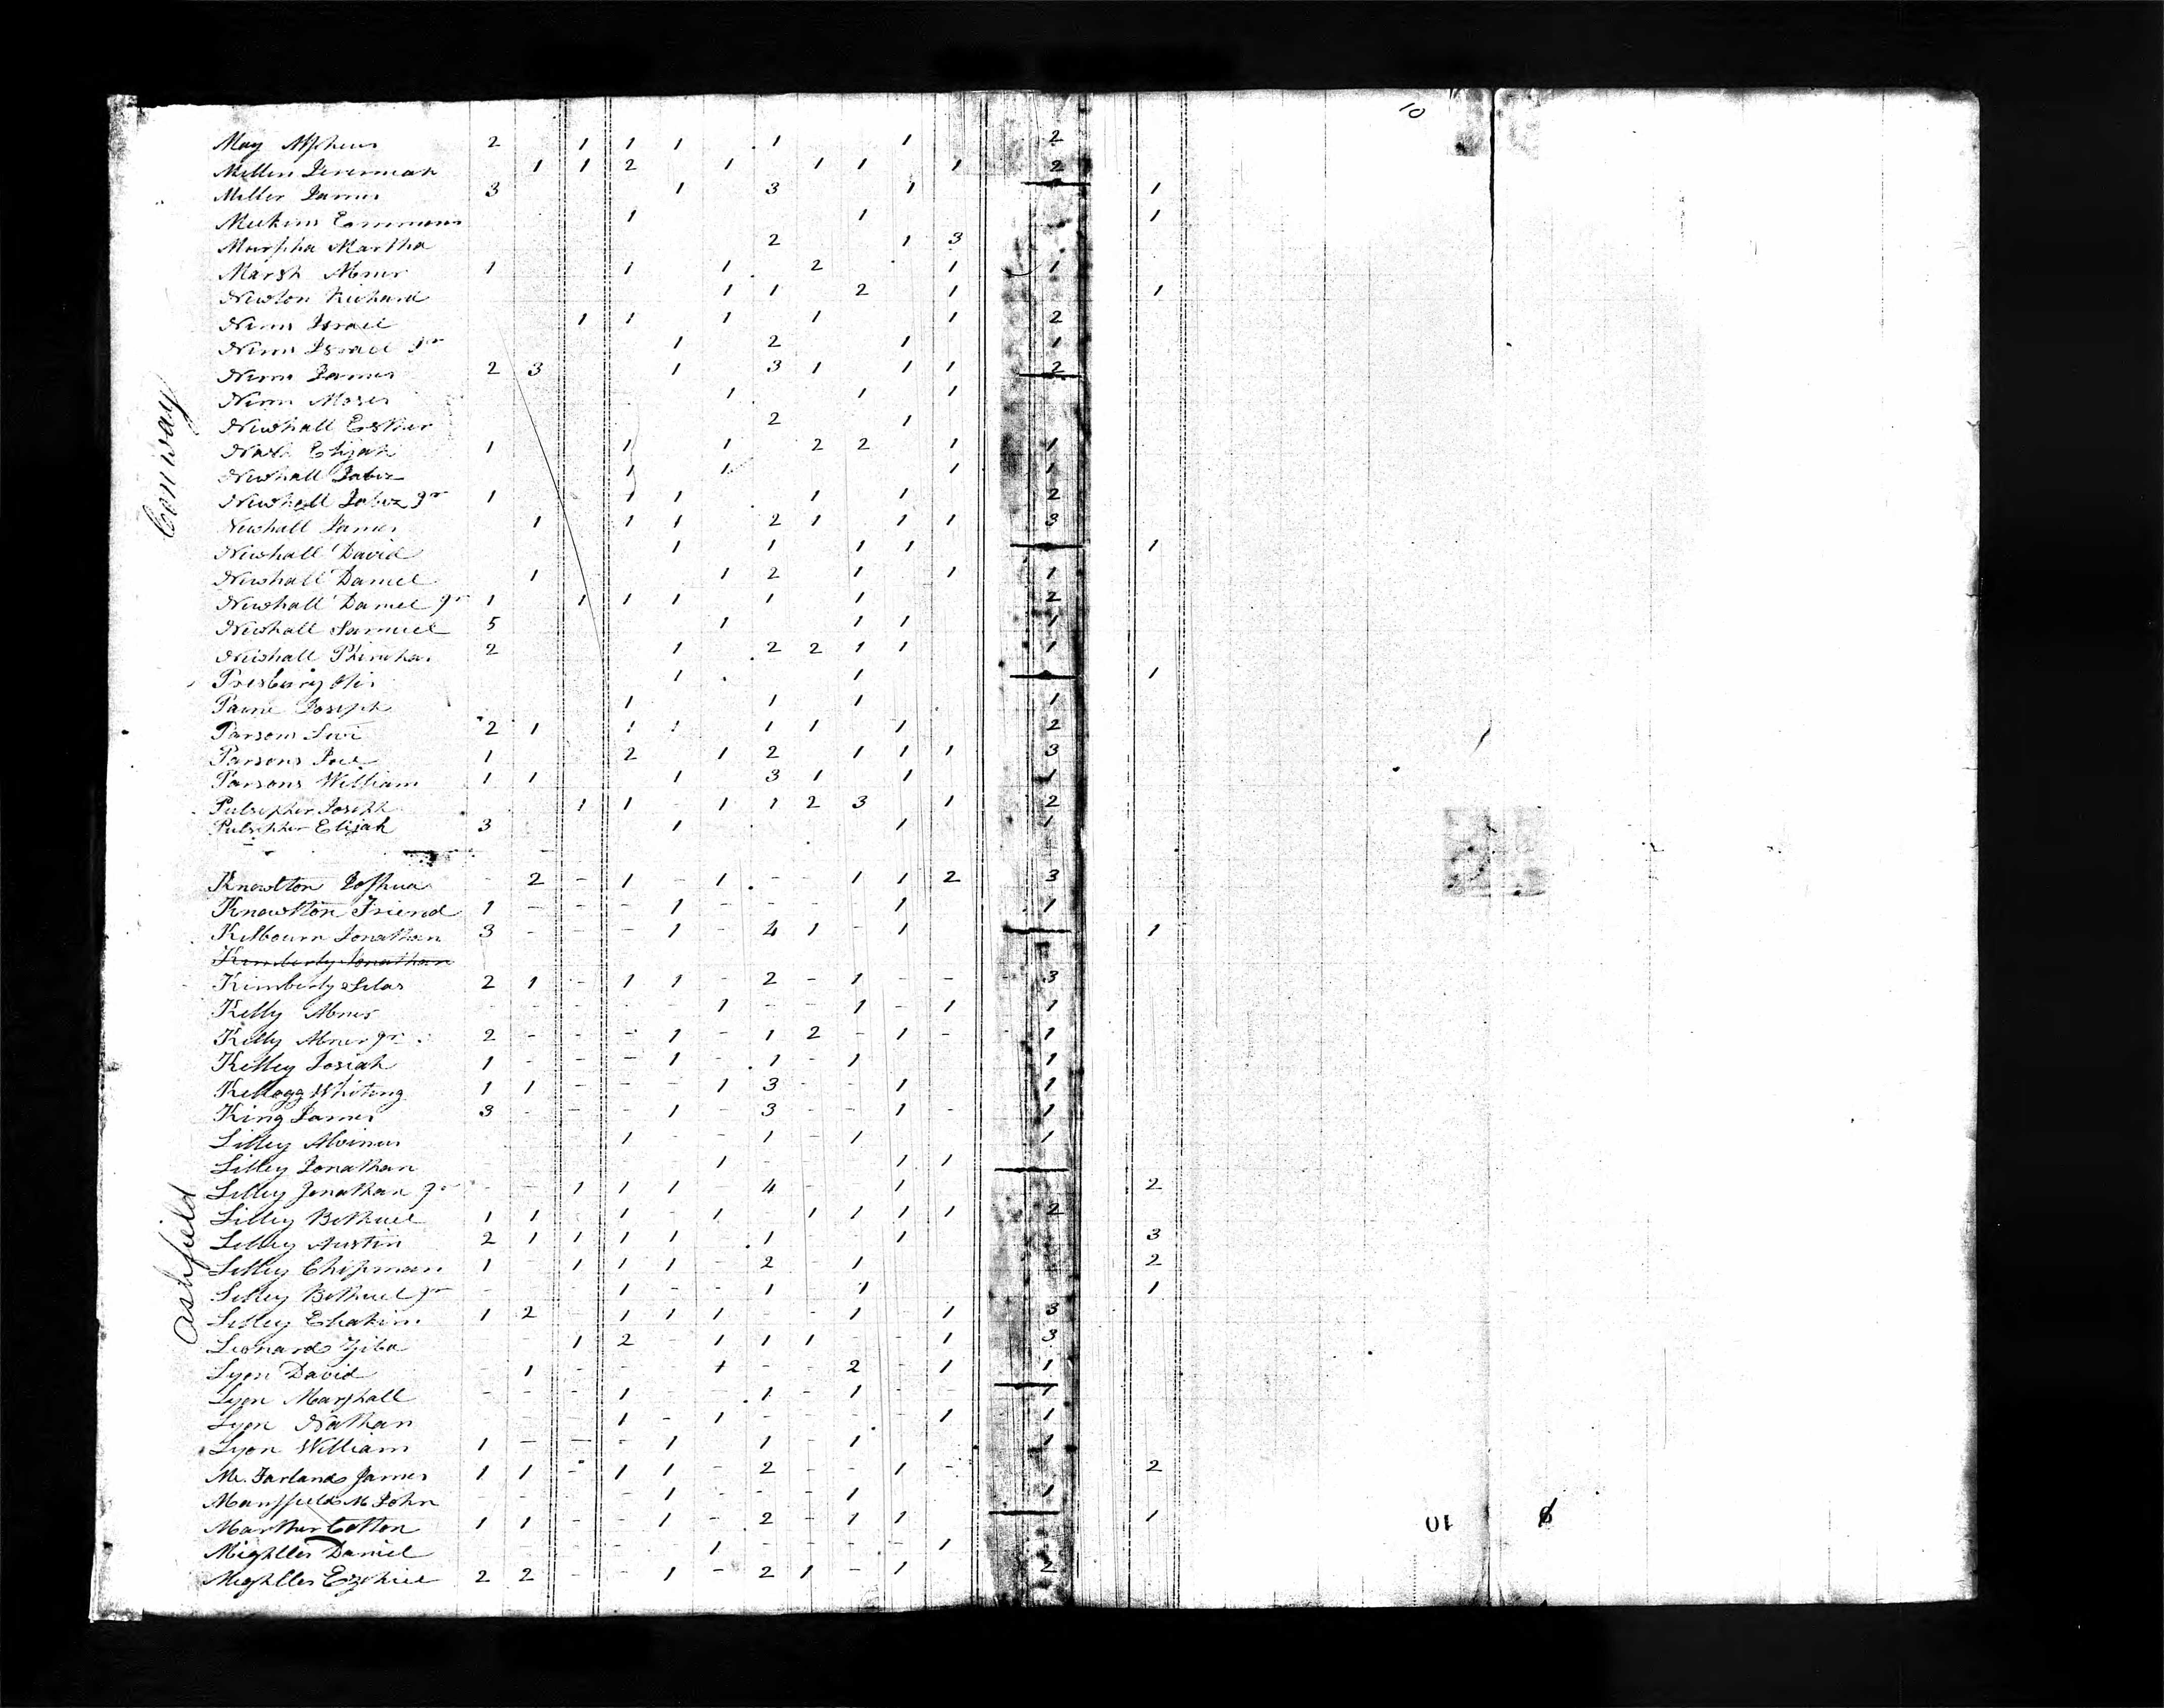 10
May Alpheus 2 1 1 1 1 1 2
Miller Jeremiah 1 1 2 1 1 1 1 2
Miller James 3 1 3 1 1
Meekins Emmons 1 1 1
Murpha Martha 2 1 3
Marsh Abner 1 1 1 2 1 1
Newton Richard 1 1 2 1 1
Nims Israel 1 1 1 1 1 2
Nims Israel Jr 1 2 1 1
Nims James 2 3 1 3 1 1 1 2
Nims Moses 1 1 1
Newhall Esther 2 1
Nash Elijah 1 1 1 2 2 1 1
Newhall Jabez 1 1 1 1
Newhall Jabez Jr 1 1 1 1 1 2
Newhall James 1 1 1 2 1 1 1 3
Newhall David 1 1 1 1 1
Newhall Daniel 1 1 2 1 1 1
Newhall Daniel Jr 1 1 1 1 1 1 2
Newhall Samuel 5 1 1 1 1
Newhall Phinehas 2 1 2 2 1 1 1
Presbury 1 1 1
Paine Joseph 1 1 1 1
Parsons Levi 2 1 1 1 1 1 1 2
Parsons Joel 1 2 1 2 1 1 1 3
Parsons William 1 1 1 3 1 1 1
Pulsipher Joseph 1 1 1 1 2 3 1 2
Pulsipher Elijah 3 1 1 1
Conway
Knowlton Joshua - 2 - 1 - 1 - - 1 1 2 3
Knowlton Friend 1 - - - 1 - - - - 1 1
Kilbourn Jonathan 3 - - - 1 - 4 1 - 1 1
Kimberly Jonathan
Kimberly Silas 2 1 - 1 1 - 2 - 1 - - 3
Kelly Abner 1 1 - 1 1
Kelly Abner Jr 2 - - - 1 - 1 2 - 1 - 1
Kelley Josiah 1 - - - 1 - 1 - 1 1
Kellogg Whiting 1 1 - - - 1 3 - - 1 1
King James 3 - - - 1 - 3 - - 1 - 1
Lilley Alvinus 1 - - 1 - 1 1
Lilley Jonathan 1 1 1
Lilley Jonathan Jr - - 1 1 1 - 4 - 1 2
Lilley Bethuel 1 1 1 - 1 1 1 1 1 2
Lilley Austin 2 1 1 1 1 1 1 3
Lilley Chipman 1 - 1 1 1 - 2 - 1 2
Lilley Bethuel Jr - 1 - - 1 1 1
Lilley Eliakim 1 2 - 1 1 1 - - 1 1 3
Leonard Ziba 1 2 - 1 1 1 - - 1 3
Lyon David - 1 - - - 1 - - 2 - 1 1
Lyon Marshall - - - 1 - - 1 - 1 - - 1
Lyon Nathan 1 - 1 - 1 1
Lyon William 1 - - - 1 1 - 1 1
Mc.Farland James 1 1 - 1 1 - 2 - - 1 - 2
Mansfield M John 1 - - - 1 1
Marther Cotton 1 1 - - 1 - 2 - 1 1 1
Mighlles Daniel 1 - - - - 1
Mighlles Ezekiel 2 2 - - 1 - 2 1 - 1 2
Ashfield
10